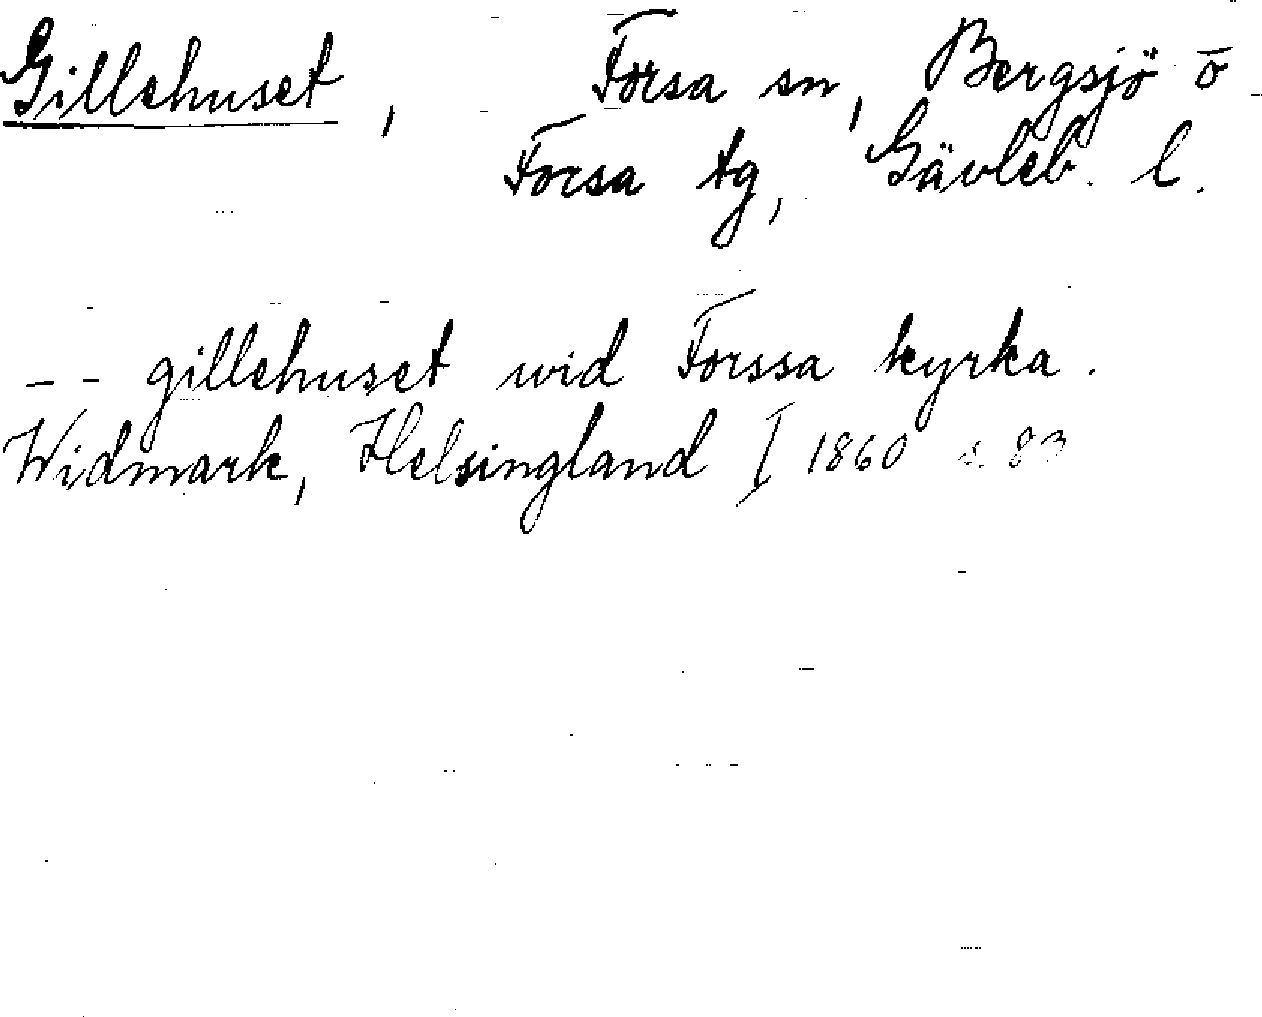 Gillehuset, Forsa sn, Bergsjö o
Forsa tg, Gävleb. l.
-- gillehuset wid Forssa kyrka.
Widmark, Helsingland I 1860 s. 83